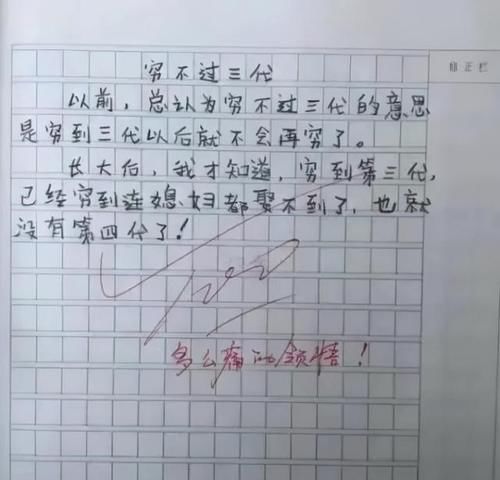 穷不过三代
修正栏
以前，总认为穷不过三代的意思
是穷到三代以后就不会再穷了。
长大后，我才知道，穷到第三代，
已经穷到连媳妇都娶不到了，也就
没有第四代了！
100
多么痛的领悟！